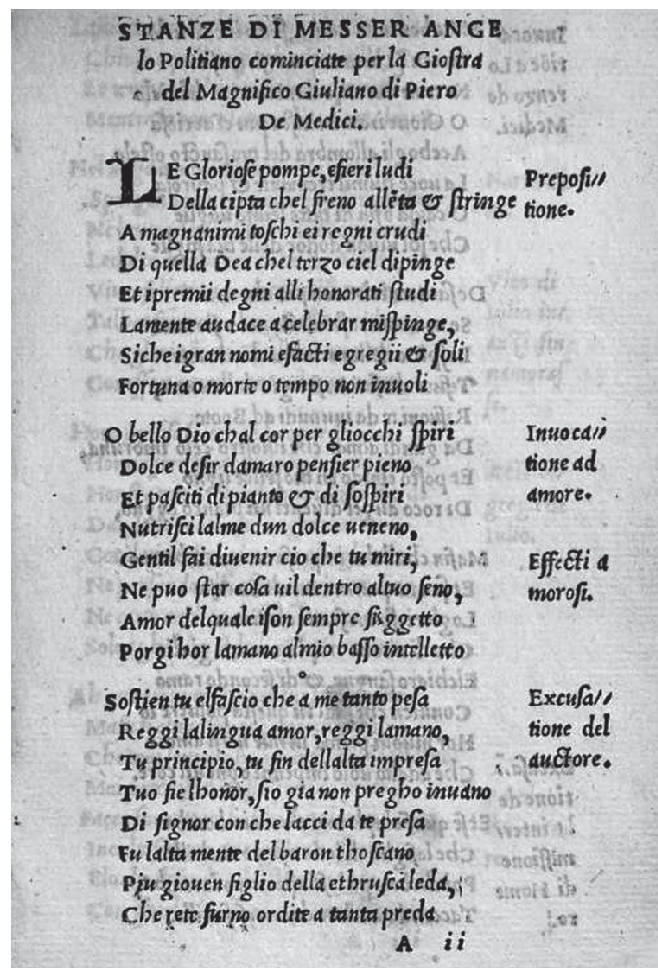 STANZE DI MESSER ANGE
lo Politiano cominciate per la Gioſtra
del Magnifico Giuliano di Piero
De Medici.
LE Glorioſe pompe, efieri ludi
Della cipta chel freno allẽta & ſtringe
A magnanimi toſchi ei regni crudi
Di quella Dea chel terzo ciel dipinge
Et ipremii degni alli honorati ſtudi
Lamente audace a celebrar miſpinge,
Siche igran nomi efacti egregii & ſoli
Fortuna o morte o tempo non inuoli
Prepoſi//
tione.
O bello Dio chal cor per gliocchi ſpiri
Dolce deſir damaro penſier pieno
Et paſciti di pianto & di ſoſpiri
Nutriſci lalme dun dolce ueneno,
Gentil fai diuenir cio che tu miri,
Ne puo ſtar coſa uil dentro altuo ſeno,
Amor delquale iſon ſempre ſuggetto
Porgi hor lamano almio baſſo intelletto
Inuoca//
tione ad
amore.
Effecti a
moroſi.
Soſtien tu elfaſcio che a me tanto peſa
Reggi lalingua amor, reggi lamano,
Tu principio, tu fin dellalta impreſa
Tuo fie lhonor, ſio gia non pregho inuano
Di ſignor con che lacci da te preſa
Fu lalta mente del baron thoſcano
Piu giouen figlio della ethruſca leda,
Che rete furno ordite a tanta preda
Excuſa//
tione del
auctore.
A ii